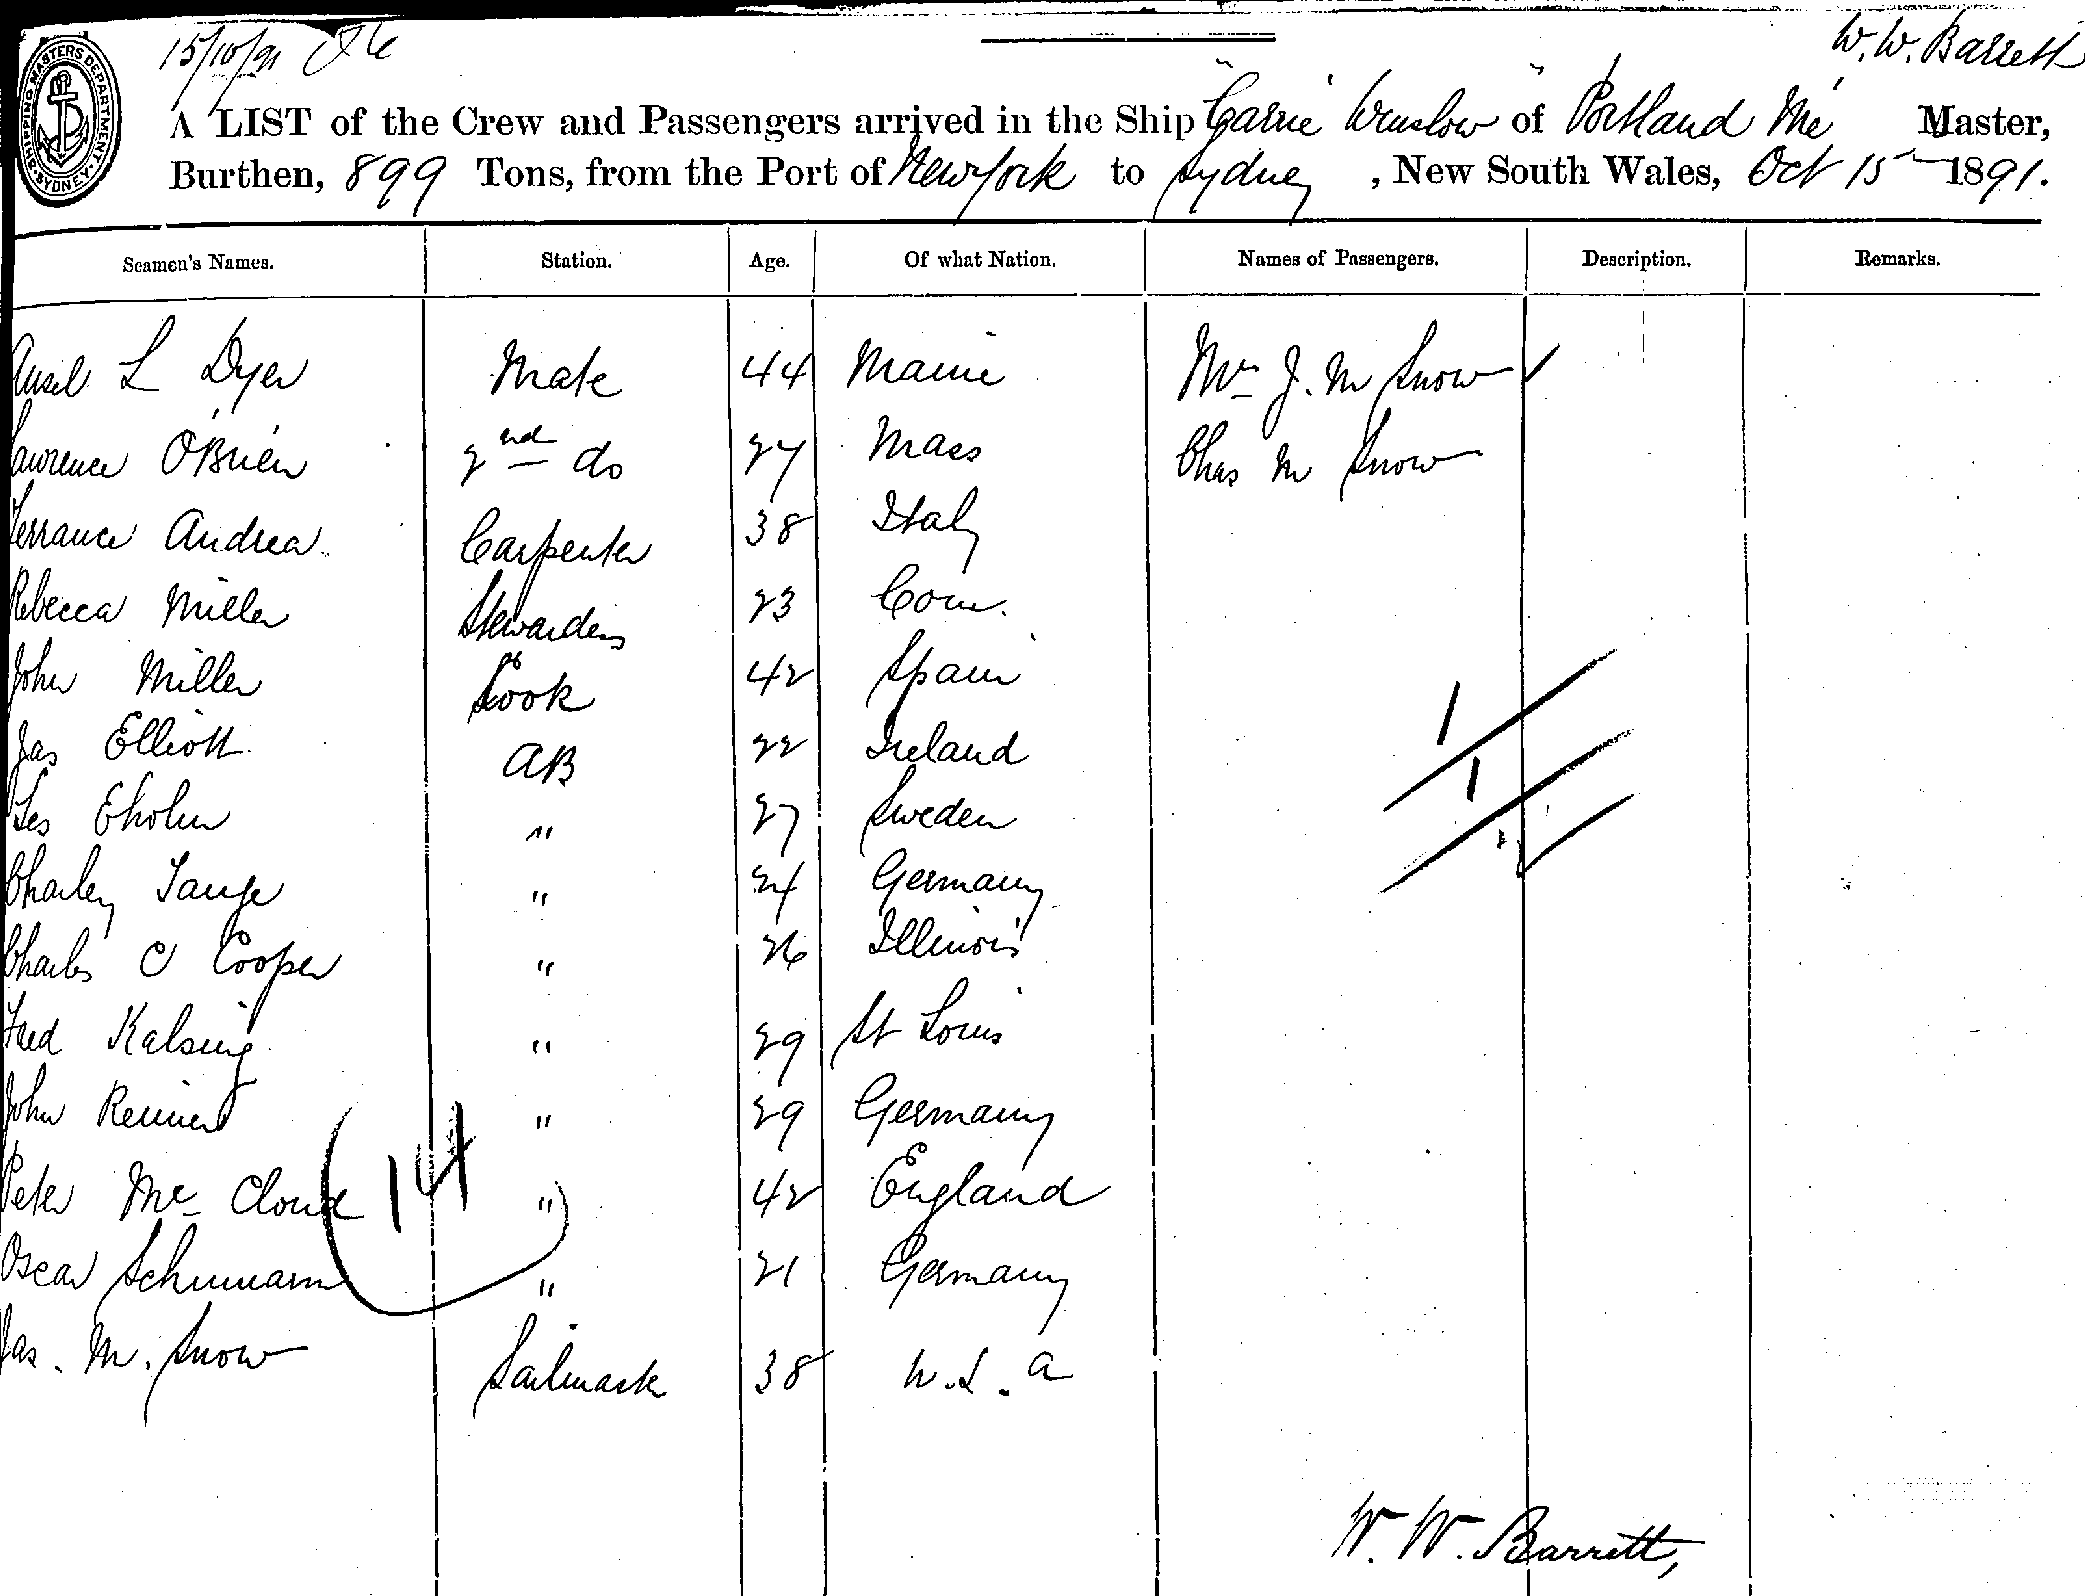 15/10/91
W. W. Barrett
SHIPPING MASTERS DEPARTMENT SYDNEY
A LIST of the Crew and Passengers arrived in the Ship "Carrie Winslow" of Portland Me Master,
Burthen, 899 Tons, from the Port of New York to Sydney, New South Wales, Oct 15 1891.
Seamen's Names. Station. Age. Of what Nation. Names of Passengers. Description. Remarks.
Ansel L Dyer Mate 44 Maine Mrs J. M Snow
Lawrence O'Brien 2nd do 27 Mass Chas M Snow
Terrance Andrea Carpenter 38 Italy
Rebecca Miller Stewardess 23 Conn.
John Miller Cook 42 Spain
Jas Elliott AB 22 Ireland
Eholm " 27 Sweden
Charley Tange " 24 Germany
Charles C Cooper " 26 Illinois
Fred Kalsing " 29 St Louis
John Reiners " 29 Germany
Peter Mc Cloud " 42 England
14
Oscar Schumann " 21 Germany
Jas. M. Snow Sailmaker 38 U.S.A
W. W. Barrett,